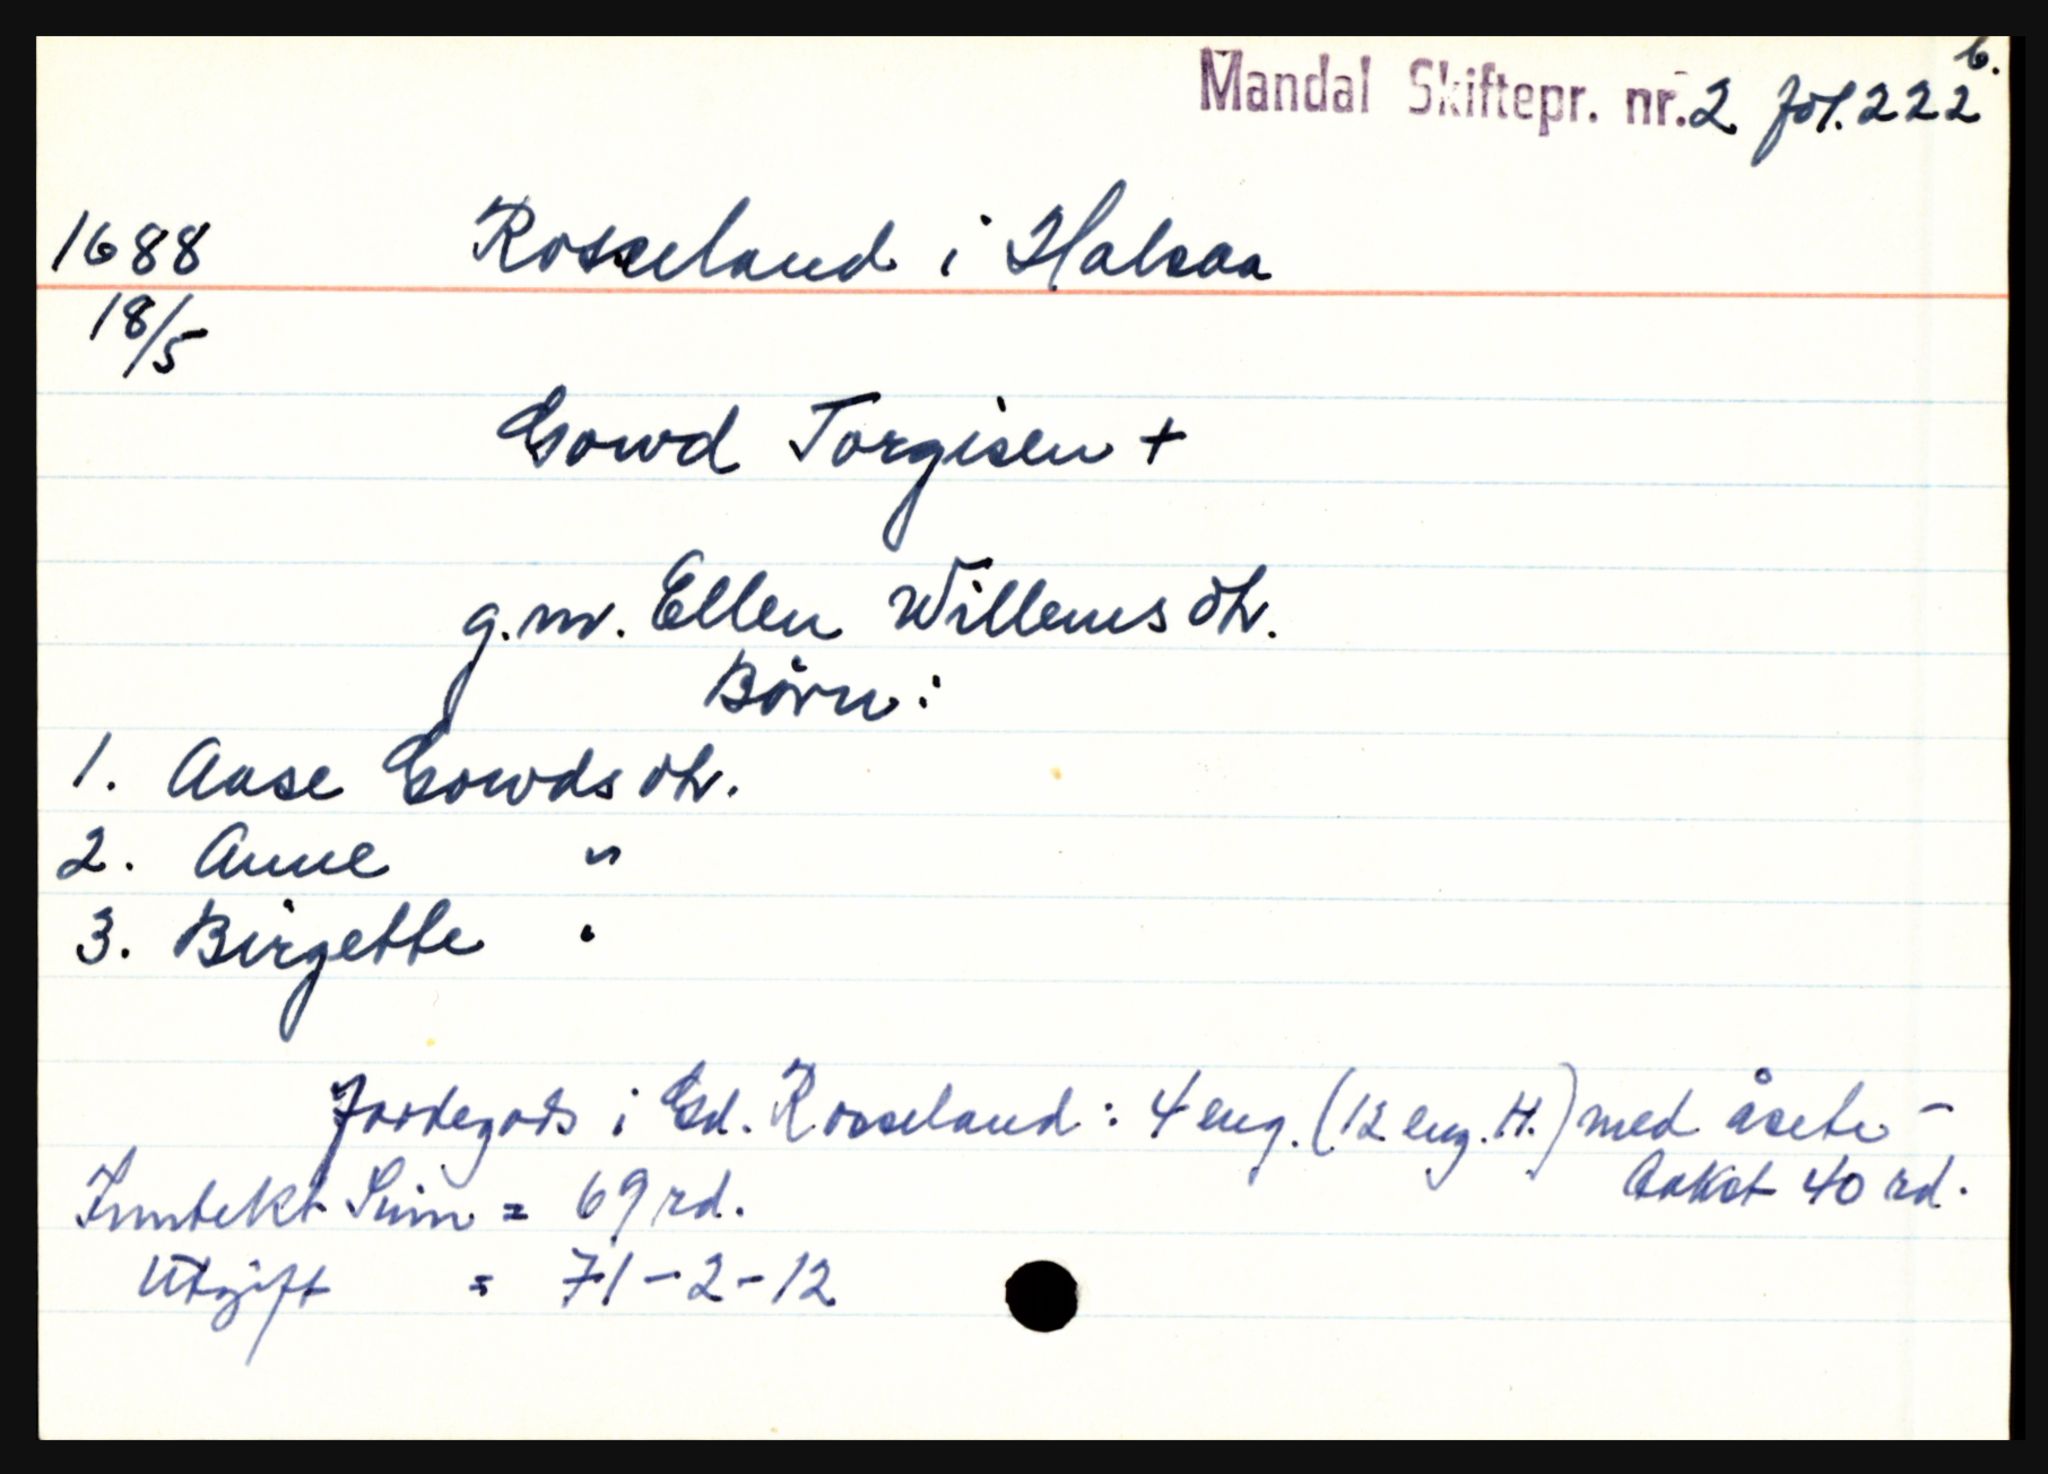 Mandal Skiftepr. nr. 2 fol. 222 b.
1688 Rosseland i Halsaa
18/5
Gowd Torgisen +
g.m. Ellen Willems dtr.
Børn:
1. Aase Gowds dtr.
2. Anne "
3. Birgette "
Jordegods i Gd. Rosseland: 4 eng. (12 eng. H.) med åsete -
takst 40 rd.
Inntekt Sum = 69 rd.
Utgift = 71-2-12